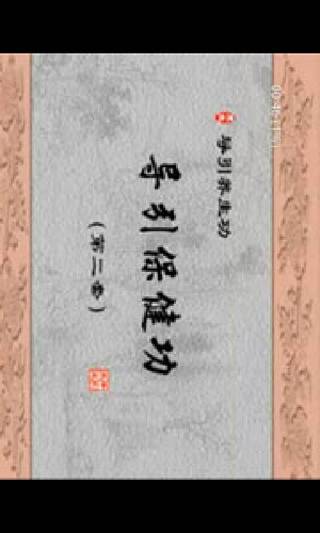 导引养生功
导引保健功
(第二套)